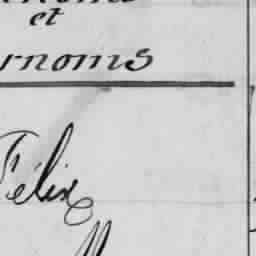 et
rnoms
Félix